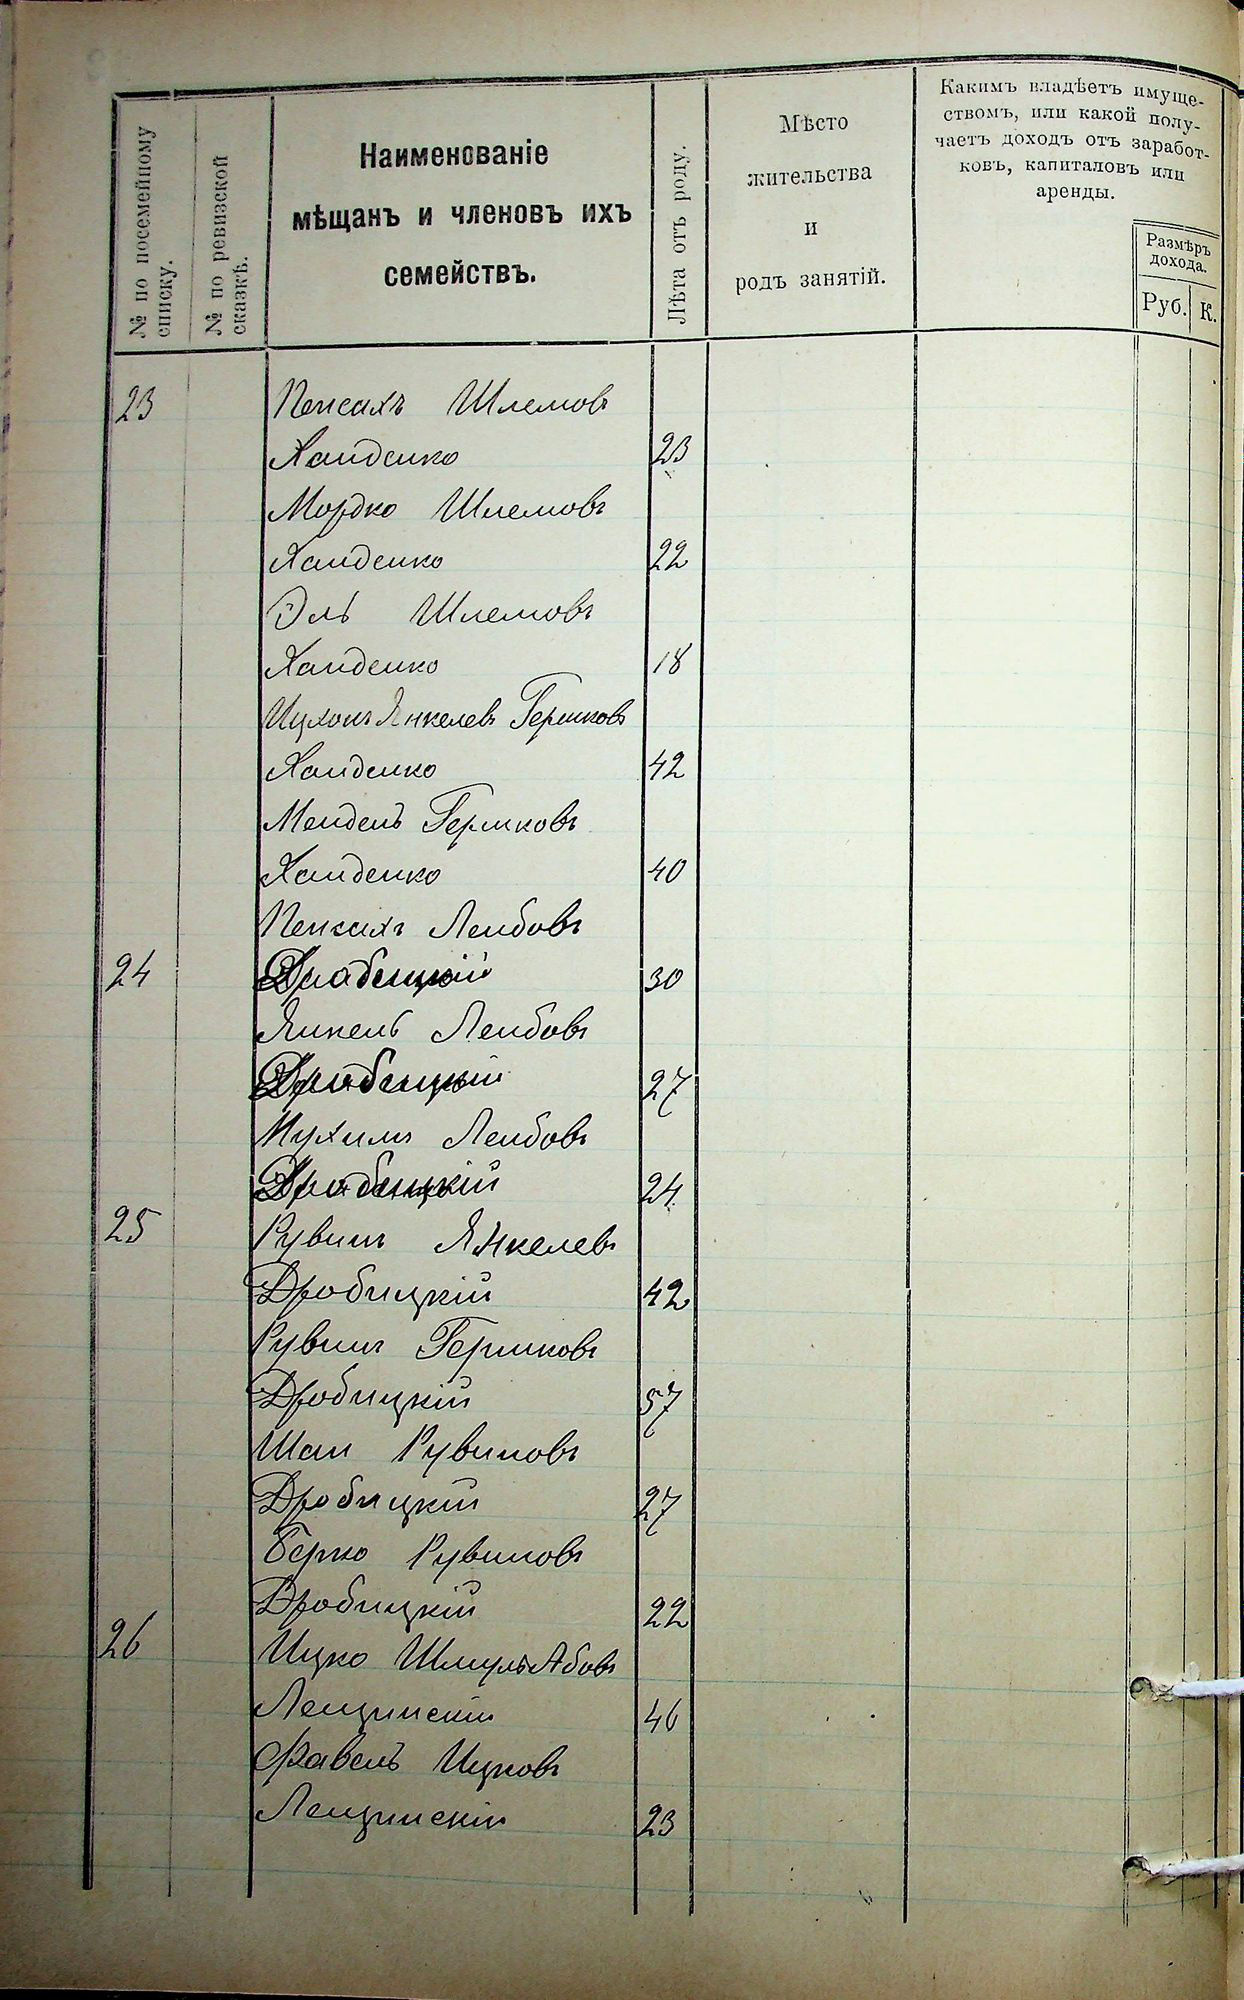 № по посемейному списку.
№ по ревизской сказкѣ.
Наименованіе
мѣщанъ и членовъ ихъ
семействъ.
Лѣта отъ роду.
Мѣсто
жительства
и
родъ занятій.
Какимъ владѣетъ имуще-
ствомъ, или какой полу-
чаетъ доходъ отъ заработ-
ковъ, капиталовъ или
аренды.
Размѣръ
дохода.
Руб. К.
23 Пейсахъ Шлемовъ
Хайденко 23
Мордко Шлемовъ
Хайденко 22
Эль Шлемовъ
Хайденко 18
Янкелевъ Гершковъ
Хайденко 42
Мендель Гершковъ
Хайденко 40
Пейсахъ Лейбовъ
24 Драбецкій 30
Янкель Лейбовъ
Драбецкій 27
Нухимъ Лейбовъ
Драбецкій 24
25 Рувинъ Янкелевъ
Дробицкій 42
Рувинъ Гершковъ
Дробицкій 57
Шая Рувиновъ
Дробицкій 27
Берко Рувиновъ
Дробицкій 22
26 Ицко Шмуль Абовъ
Лещинскій 46
Фавель Ицковъ
Лещинскій 23